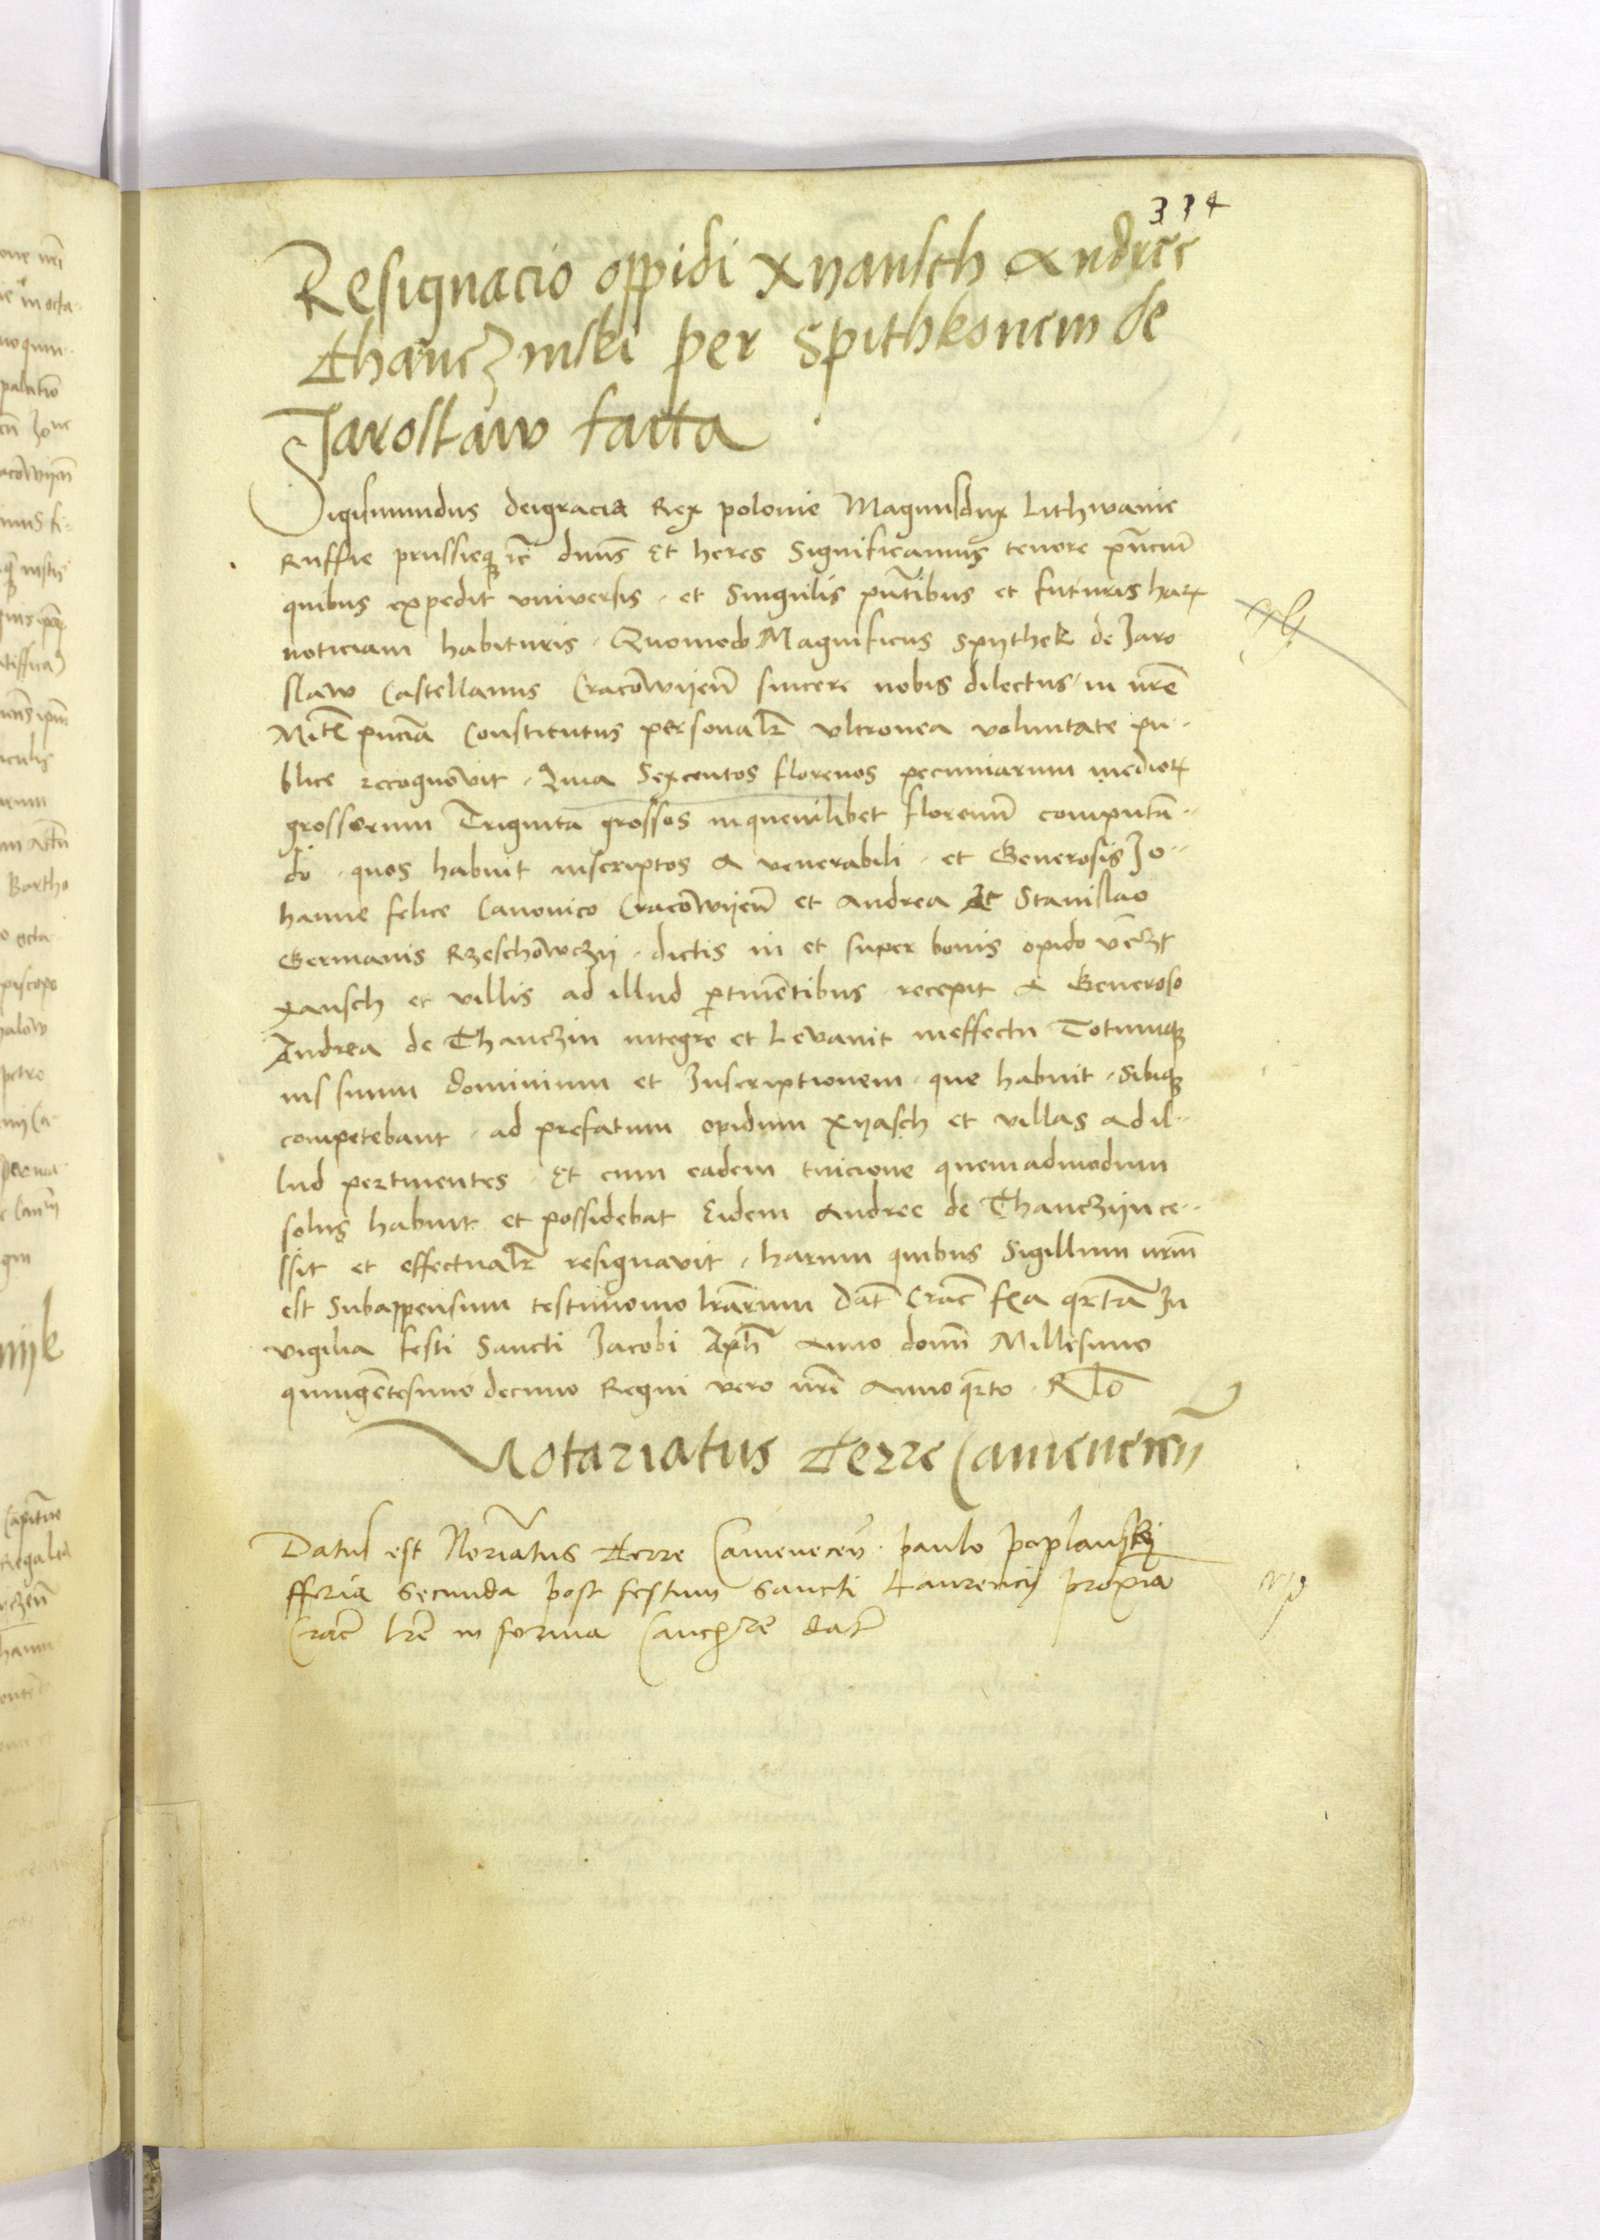 334
Resignacio oppidi Xyansch Andree
Thanczinski per Spithkonem de
Jaroslaw facta
Sigismundus deigracia Rex polonie Magnusdux Lithwanie
Russie prussieq; ic̃ dn̄us Et heres Significamus tenore pn̄cium
quibus expedit vniversis et Singulis pn̄tibus et futuris harꝝ
noticiam habituris. Quomodo Magnificus Spythek de Jaro
slaw Castellanus Cracowijeñ sincere nobis dilectus in nr̄e
Mtis pn̄cia Constitutus personalr̄ ultronea voluntate pu-
blice recognovit. Quia Sexcentos florenos pecuniarum mediorꝝ
grossorum Triginta grossos inquemlibet florenum computan-
do quos habuit inscriptos a venerabili et Generosis Jo-
hanne felice Canonico Cracowijeñ et Andrea et Stanislao
Germanis Rzeschowczij dictis in et super bonis opido
Xansch et villis ad illud ꝑtinētibus recepit a Generoso
Andrea de Thanczin integre et Levavit ineffectu Totumq;
ius suum dominium et Inscriptionem que habuit Sibiq;
competebant ad prefatum opidum Xyasch et villas adil-
lud pertinentes Et cum eadem tuicione quemadmodum
solus habuit et possidebat Eidem Andree de Thanczijn ce-
ssit et effectualr̄ resignavit. harum quibus Sigillum nr̄m
est Subappensum testimonio lr̄arum Dat̄ Crac̄ fr̄a qr̄ta In
vigilia festi Sancti Jacobi Apl̄i Anno domī Millesimo
quingētesimo decimo Regni vero nr̄i Anno qr̄to. Rlō
Notariatus terre Camenecen̄
Datus est Nor̄iatus terre Camenecen̄ paulo poplawskij
fferia Secunda post festum Sancti Laurencij proxīa
Crac̄ lr̄e in forma Canc̄ r̄e dat̄